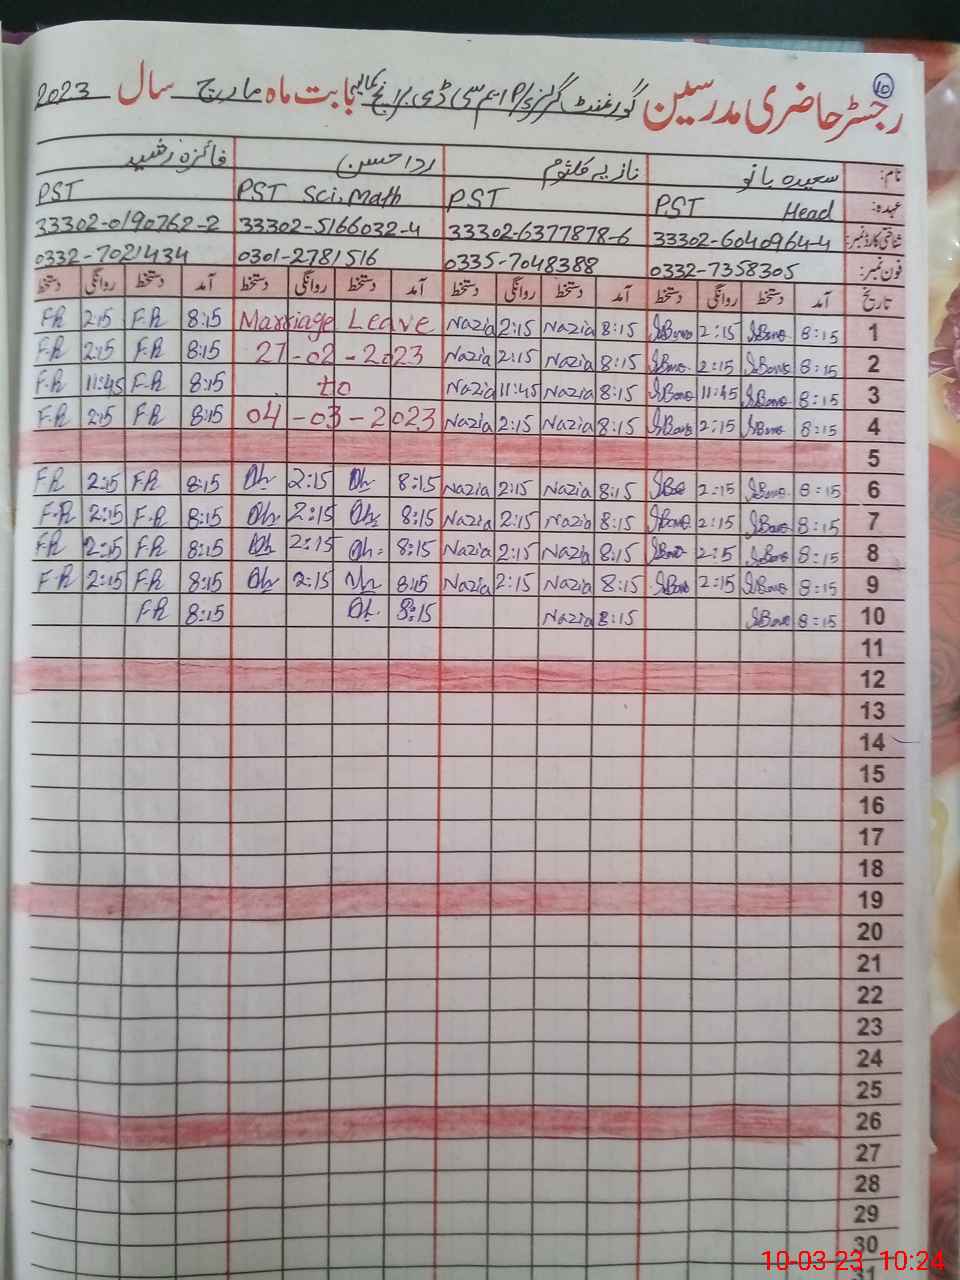 10
رجسٹر حاضری مدرسین گورنمنٹ گرلز پرائمری بابت ماہ مارچ سال 2023
نام: سعیدہ بانو نازیہ کلثوم ردا حسن فائزہ رشید
عہدہ: PST Head PST PST Sci.Math PST
شناختی کارڈ نمبر: 33302-6040964-4 33302-6377878-6 33302-5166032-4 33302-0190762-2
فون نمبر: 0332-7358305 0335-7048388 0301-2781516 0332-7021434
تاریخ آمد دستخط روانگی دستخط آمد دستخط روانگی دستخط آمد دستخط روانگی دستخط آمد دستخط روانگی دستخط
F.R 2:15 F.R 8:15 Marriage Leave Nazia 2:15 Nazia 8:15 SBano 2:15 SBano 8:15 1
F.R 2:15 F.R 8:15 27-02-2023 Nazia 2:15 Nazia 8:15 SBano 2:15 SBano 8:15 2
F.R 11:45 F.R 8:15 to Nazia 11:45 Nazia 8:15 SBano 11:45 SBano 8:15 3
F.R 2:15 F.R 8:15 04-03-2023 Nazia 2:15 Nazia 8:15 SBano 2:15 SBano 8:15 4
5
F.R 2:15 F.R 8:15 2:15 8:15 Nazia 2:15 Nazia 8:15 SBano 2:15 SBano 8:15 6
F.R 2:15 F.R 8:15 2:15 8:15 Nazia 2:15 Nazia 8:15 SBano 2:15 SBano 8:15 7
F.R 2:15 F.R 8:15 2:15 8:15 Nazia 2:15 Nazia 8:15 SBano 2:5 SBano 8:15 8
F.R 2:15 F.R 8:15 2:15 8:15 Nazia 2:15 Nazia 8:15 SBano 2:15 SBano 8:15 9
F.R 8:15 8:15 Nazia 8:15 SBano 8:15 10
11
12
13
14
15
16
17
18
19
20
21
22
23
24
25
26
27
28
29
30
31
10-03-23 10:24